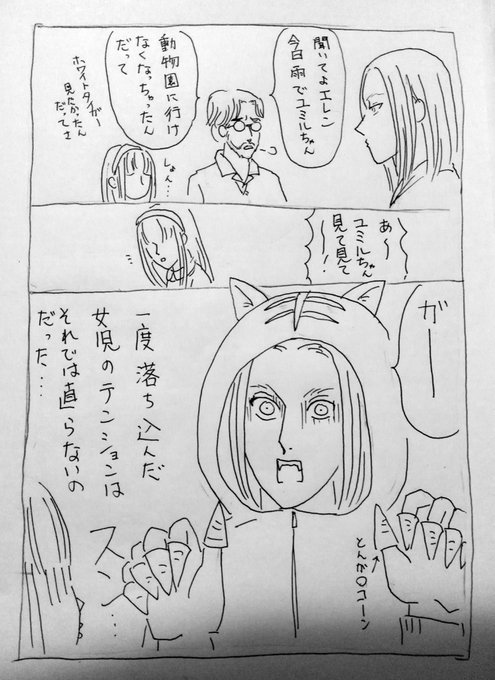 聞いてよエレン
今日雨でユミルちゃん
動物園に行け
なくなっちゃったん
だって
ホワイトタイガー
見たかったん
だってさ
しょん…
あ〜
ユミルちゃん
見て見て
〜！
ガー
一度落ち込んだ
女児のテンションは
それでは直らないの
だった…
とんが○コーン
スン…